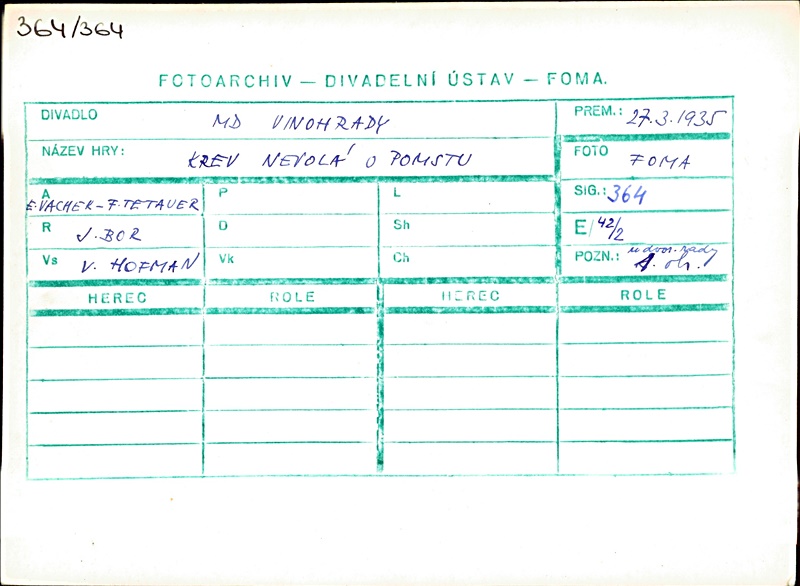 364/364
FOTOARCHIV — DIVADELNÍ ÚSTAV — FOMA.
DIVADLO MD VINOHRADY
PREM.: 27.3.1935
NÁZEV HRY: KREV NEVOLÁ O POMSTU
FOTO FOMA
A E.VACHEK-F.TETAUER
P
L
SIG.: 364
R J.BOR
D
Sh
E/42/2
Vs V. HOFMAN
Vk
Ch
POZN.: u dvor. rady
HEREC ROLE HEREC ROLE